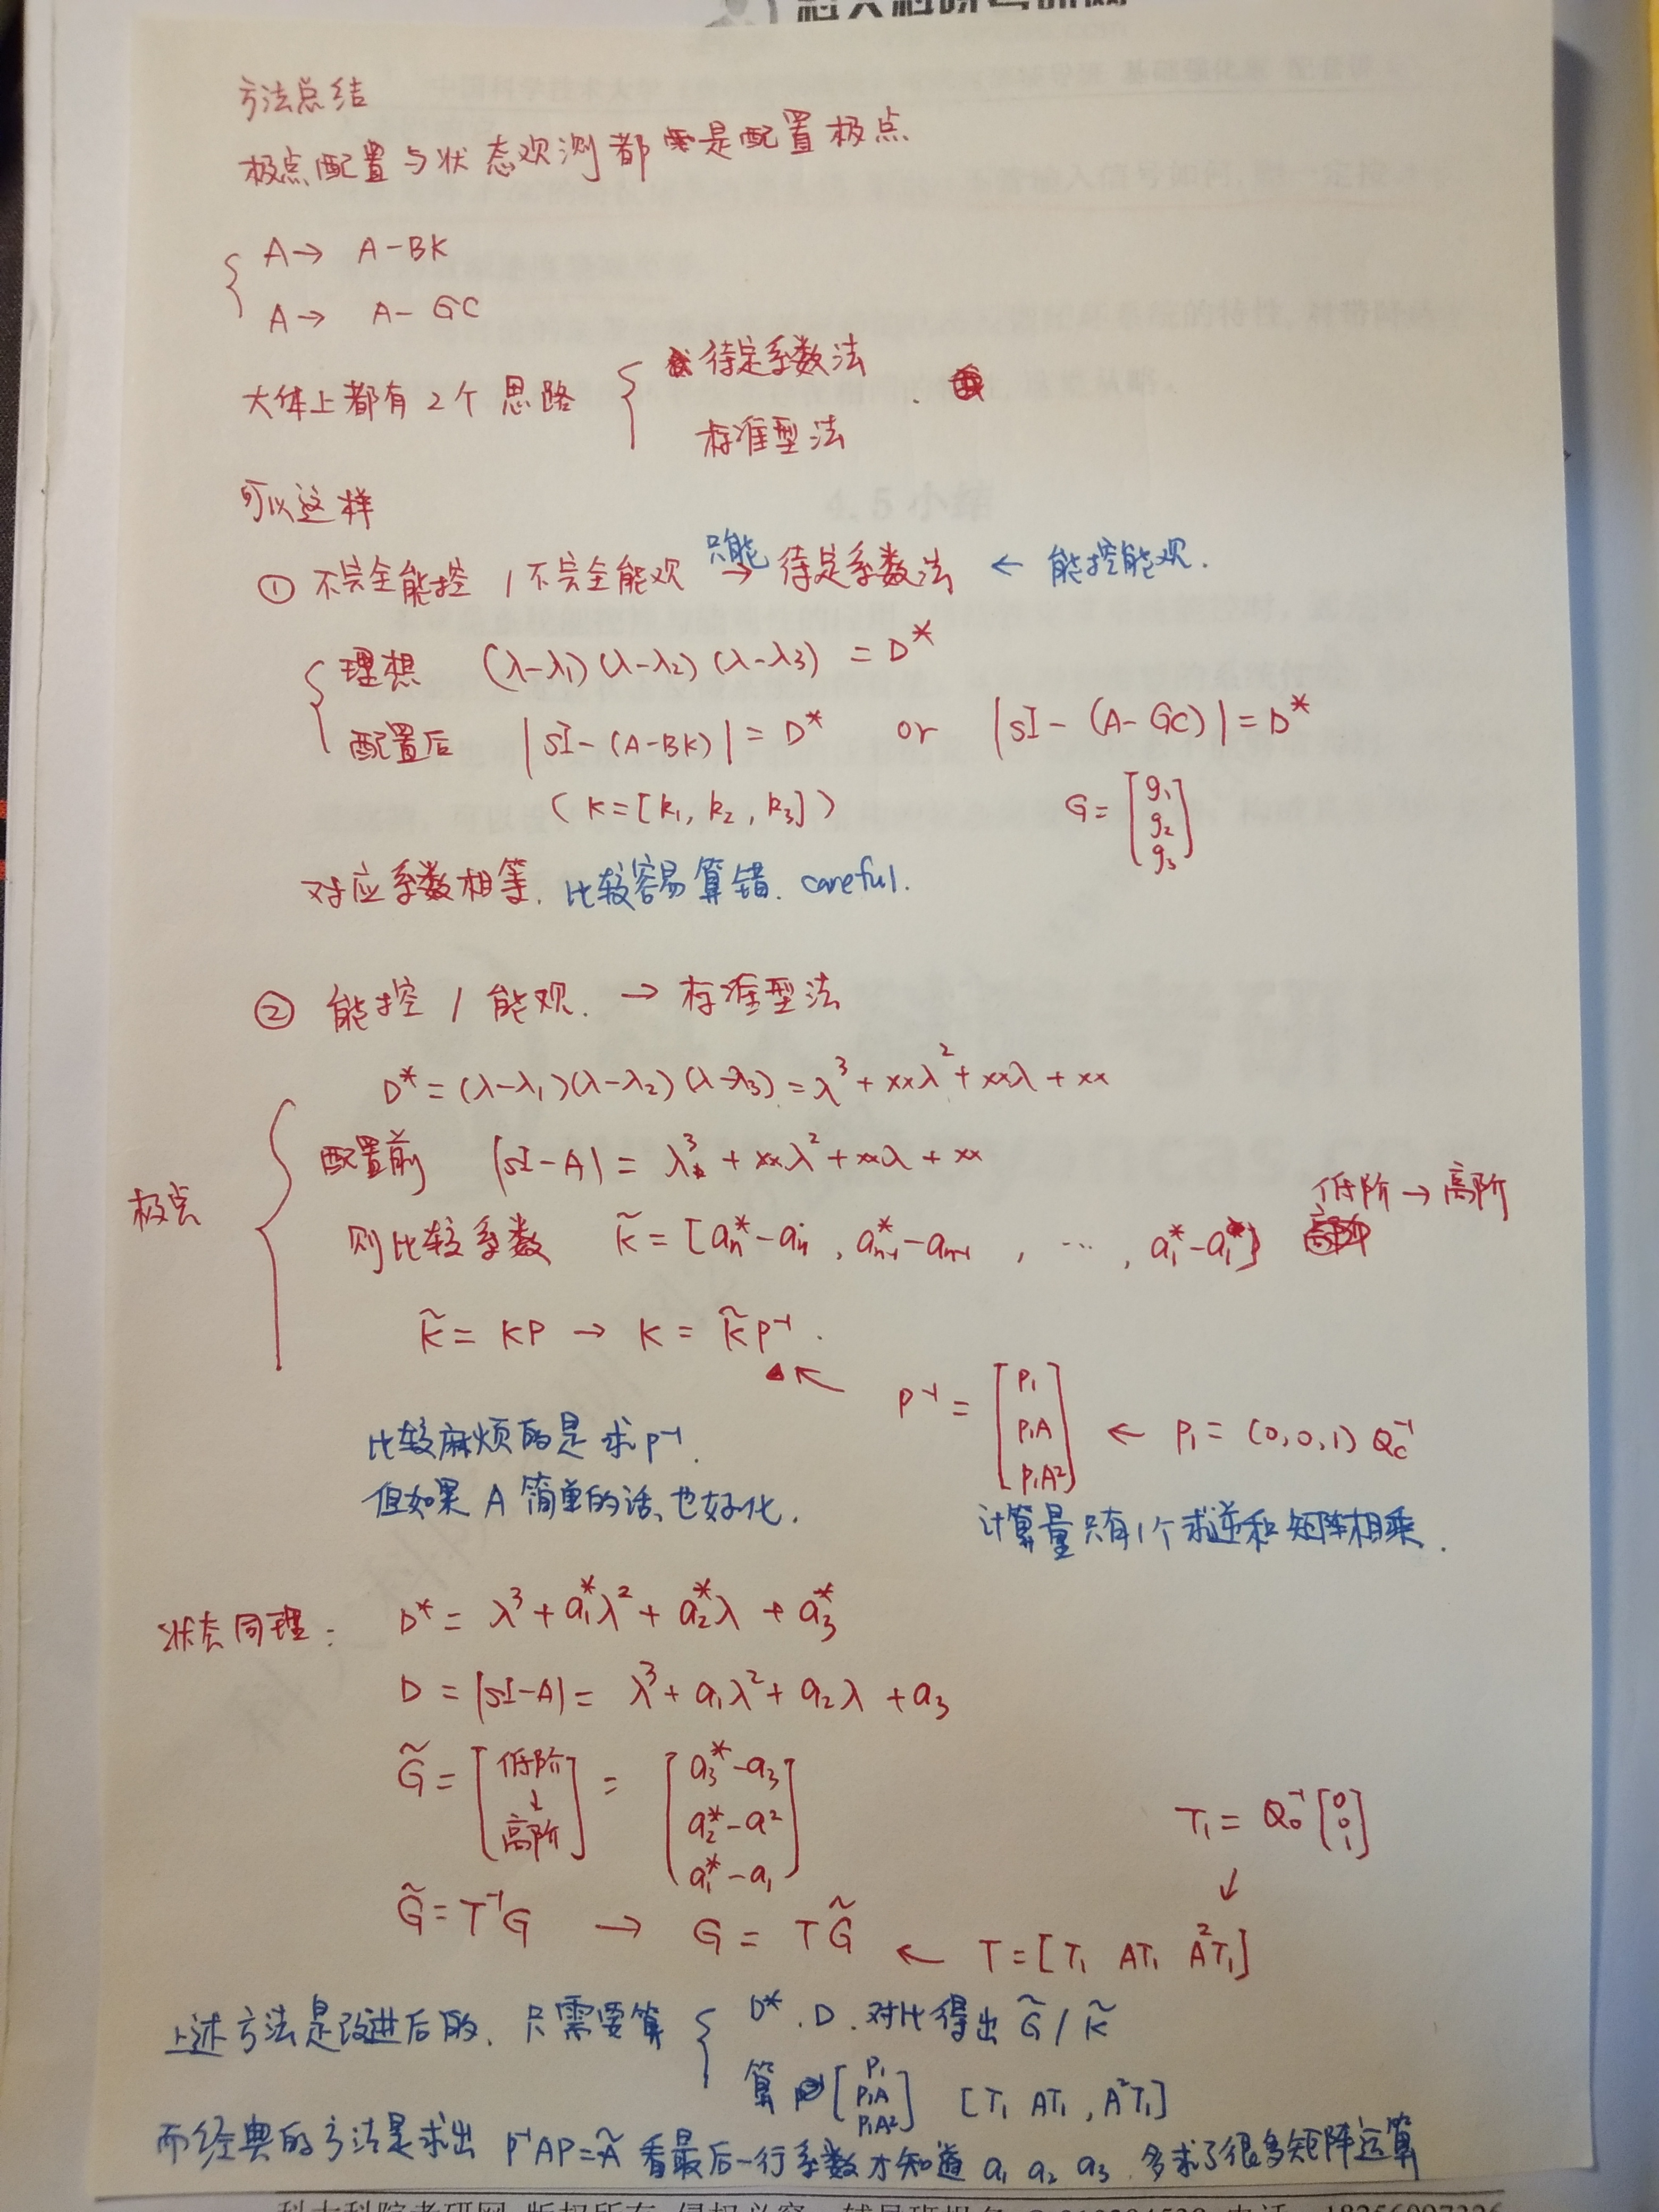 方法总结
极点配置与状态观测都是配置极点
A→ A-BK
A→ A-GC
大体上都有2个思路 { 待定系数法
标准型法
可以这样
① 不完全能控 / 不完全能观 只能→ 待定系数法 ← 能控能观.
理想 (λ-λ₁)(λ-λ₂)(λ-λ₃) = D*
配置后 |sI-(A-BK)| = D* or |sI-(A-GC)| = D*
(K=[k₁, k₂, k₃]) G=[g₁ g₂ g₃]
对应系数相等. 比较容易算错. careful.
② 能控 / 能观. → 标准型法
D* = (λ-λ₁)(λ-λ₂)(λ-λ₃) = λ³ + xxλ² + xxλ + xx
配置前 |sI-A| = λ³ + xxλ² + xxλ + xx
极点 则比较系数 K̃ = [aₙ*-aₙ, aₙ₋₁*-aₙ₋₁, ⋯, a₁*-a₁] 低阶→高阶
K̃ = KP → K = K̃P⁻¹.
P⁻¹ = [P₁ P₁A P₁A²] ← P₁ = (0,0,1) Qc⁻¹
比较麻烦的是求P⁻¹.
但如果A简单的话、也好化.
计算量只有1个求逆和矩阵相乘.
状态同理: D* = λ³ + a₁*λ² + a₂*λ + a₃*
D = |sI-A| = λ³ + a₁λ² + a₂λ + a₃
G̃ = [低阶 ↓ 高阶] = [a₃*-a₃ a₂*-a² a₁*-a₁]
T₁ = Q₀⁻¹ [0 0 1]
↓
G̃ = T⁻¹G → G = TG̃ ← T = [T₁ AT₁ A²T₁]
上述方法是改进后的. 只需要算 { D*. D. 对比得出 G̃ / K̃
算 [P₁ P₁A P₁A²] [T₁ AT₁, A²T₁]
而经典的方法是求出 P⁻¹AP=Ã 看最后一行系数才知道 a₁ a₂ a₃. 多求了很多矩阵运算